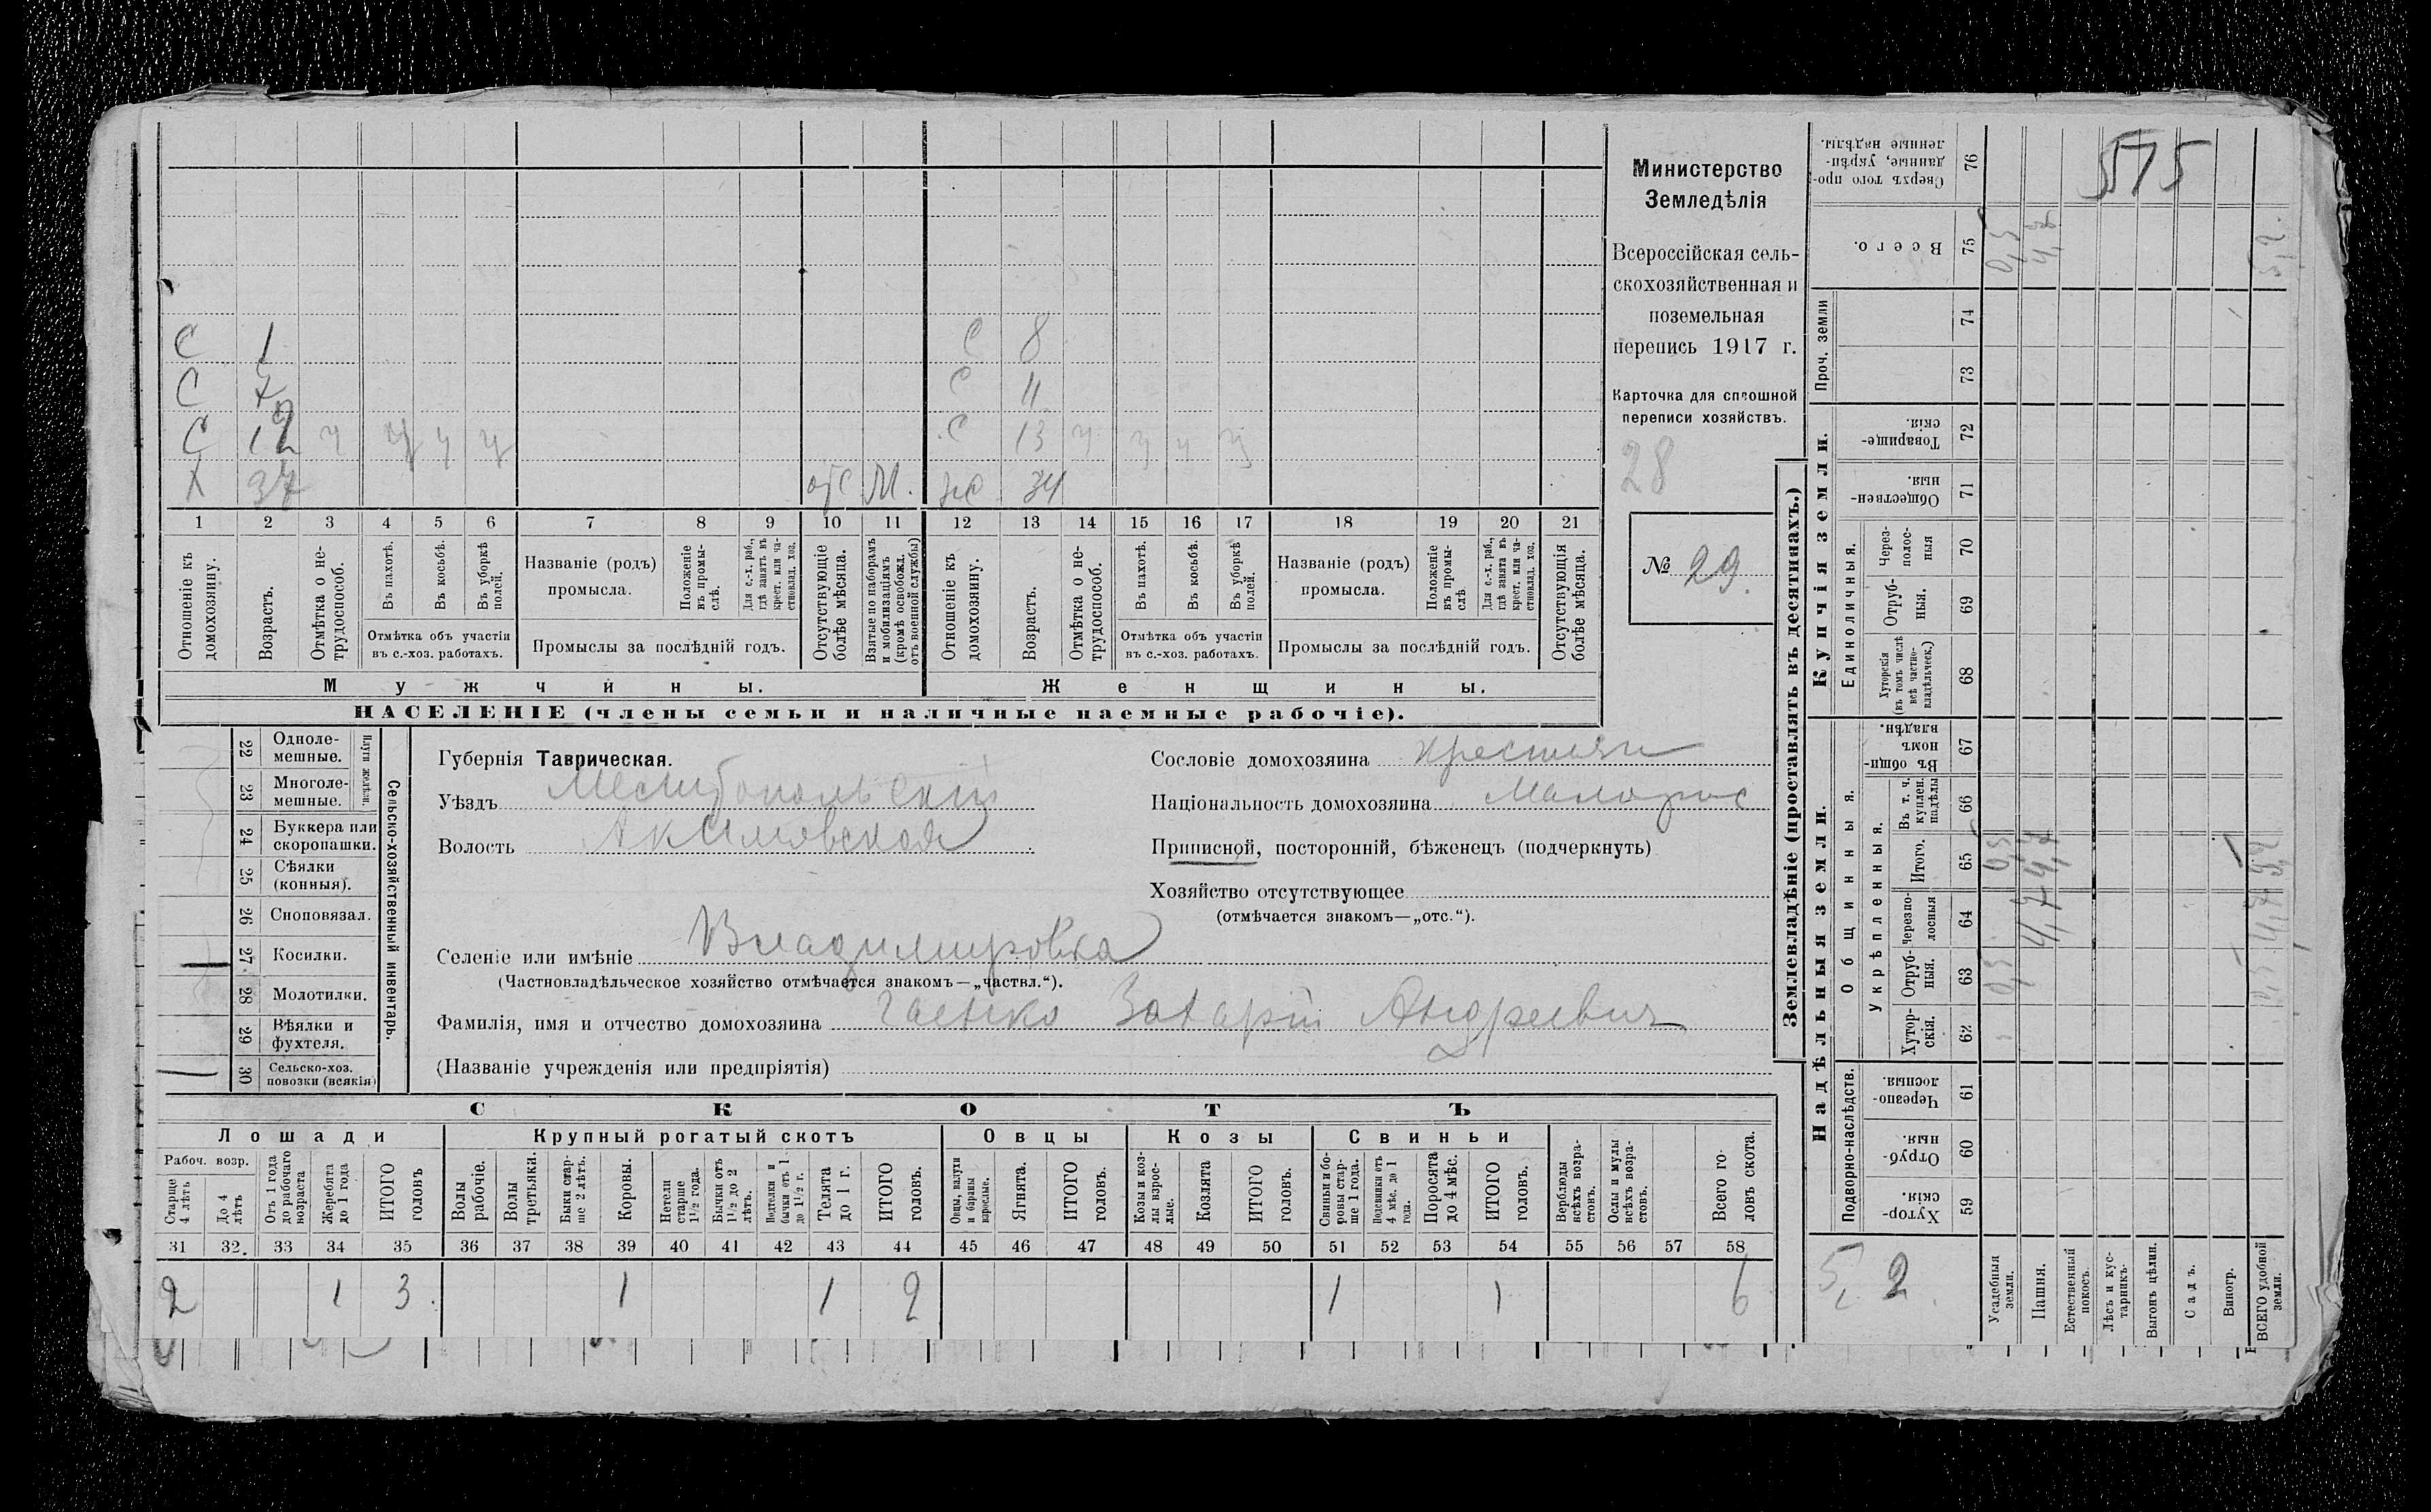 С 1 С 8
С С 11
С 12 ч ч ч ч С 13 ч ч ч ч
Х 37 отс М. жс 34
1 2 3 4 5 6 7 8 9 10 11 12 13 14 15 16 17 18 19 20 21
Отношеніе къ домохозяину.
Возрастъ.
Отмѣтка о не-
трудоспособ.
Въ пахотѣ.
Въ косьбѣ.
Въ уборкѣ полей.
Отмѣтка объ участіи
въ с.-хоз. работахъ.
Названіе (родъ)
промысла.
Положеніе въ промы-
слѣ.
Для с.-х. раб., гдѣ занятъ въ крест. или ча-
стновлад. хоз.
Промыслы за послѣдній годъ.
Отсутствующіе болѣе мѣсяца.
Взятые по наборамъ и мобилизаціямъ (кромѣ освобожд. отъ военной службы)
Отношеніе къ домохозяину.
Возрастъ.
Отмѣтка о не-
трудоспособ.
Въ пахотѣ.
Въ косьбѣ.
Въ уборкѣ полей.
Отмѣтка объ участіи
въ с.-хоз. работахъ.
Названіе (родъ)
промысла.
Положеніе въ промы-
слѣ
Для с.-х. раб., гдѣ занята въ крест. или ча-
стновлад. хоз.
Промыслы за послѣдній годъ.
Отсутствующія болѣе мѣсяца.
Мужчины.
Женщины.
НАСЕЛЕНІЕ (члены семьи и наличные наемные рабочіе).
Министерство
Земледѣлія
Всероссійская сель-
скохозяйственная и
поземельная
перепись 1917 г.
Карточка для сплошной
переписи хозяйствъ.
28
№ 29.
22 Одноле-
мешные.
23 Многоле-
мешные.
Плуги желѣзн.
24 Буккера или
скоропашки.
25 Сѣялки
(конныя).
26 Сноповязал.
27 Косилки.
28 Молотилки.
29 Вѣялки и
фухтеля.
30 Сельско-хоз.
повозки (всякія)
Сельско-хозяйственный инвентарь.
Губернія Таврическая.
Уѣздъ Мелитопольскій
Волость Акимовская
Селеніе или имѣніе Владимировка
(Частновладѣльческое хозяйство отмѣчается знакомъ—„частвл.“).
Фамилія, имя и отчество домохозяина Гаенко Захарій Андреевич
(Названіе учрежденія или предпріятія)
Сословіе домохозяина крестьян
Національность домохозяина Малорос
Приписной, посторонній, бѣженецъ (подчеркнуть)
Хозяйство отсутствующее
(отмѣчается знакомъ—„отс.“).
СКОТЪ
Лошади
Крупный рогатый скотъ
Овцы
Козы
Свиньи
Рабоч. возр.
Старше 4 лѣтъ
До 4 лѣтъ
Отъ 1 года до рабочаго возраста
Жеребята до 1 года
ИТОГО головъ
Волы рабочіе.
Волы третьяки.
Быки стар-
ше 2 лѣтъ.
Коровы.
Нетели старше 1½ года.
Бычки отъ 1½ до 2 лѣтъ.
Подтелки и бычки отъ 1 до 1½ г.
Телята до 1 г.
ИТОГО головъ.
Овцы, валухи и бараны взрослые.
Ягнята.
ИТОГО головъ.
Козы и коз-
лы взрос-
лые.
Козлята
ИТОГО головъ.
Свиньи и бо-
ровы стар-
ше 1 года.
Подсвинки отъ 4 мѣс. до 1 года.
Поросята до 4 мѣс.
ИТОГО головъ.
Верблюды всѣхъ возра-
стовъ.
Ослы и мулы всѣхъ возра-
стовъ.
Всего го-
ловъ скота.
31 32. 33 34 35 36 37 38 39 40 41 42 43 44 45 46 47 48 49 50 51 52 53 54 55 56 57 58
2 1 3. 1 1 2 1 1 6
Землевладѣніе (проставлять въ десятинахъ.)
Надѣльныя земли.
Купчія земли.
Проч. земли
Подворно-наслѣдств.
Общинныя.
Укрѣпленныя.
Единоличныя.
Сверхъ того про-
данные, укрѣп-
ленные надѣлы. 76
575
Всего. 75 0,5 4,7 5,2.
74
73
Товарище-
скія. 72
Обществен-
ныя. 71
Через-
полос-
ныя 70
Отруб-
ныя. 69
Хуторскія (въ томъ числѣ всѣ частно-
владѣльческ.) 68
Въ общи-
номъ
владѣн. 67
Въ т. ч. куплен. надѣлы 66
Итого. 65 0,5 4,7 5,2
Черезпо-
лосныя 64 4,7 4,7
Отруб-
ныя. 63 0,5 0,5
Хутор-
скія. 62
Черезпо-
лосныя. 61
Отруб-
ныя. 60
Хутор-
скія. 59
5,2.
Усадебныя земли.
Пашня.
Естественный покосъ.
Лѣсъ и кус-
тарникъ.
Выгонъ цѣлин.
Садъ.
Виногр.
ВСЕГО удобной земли.